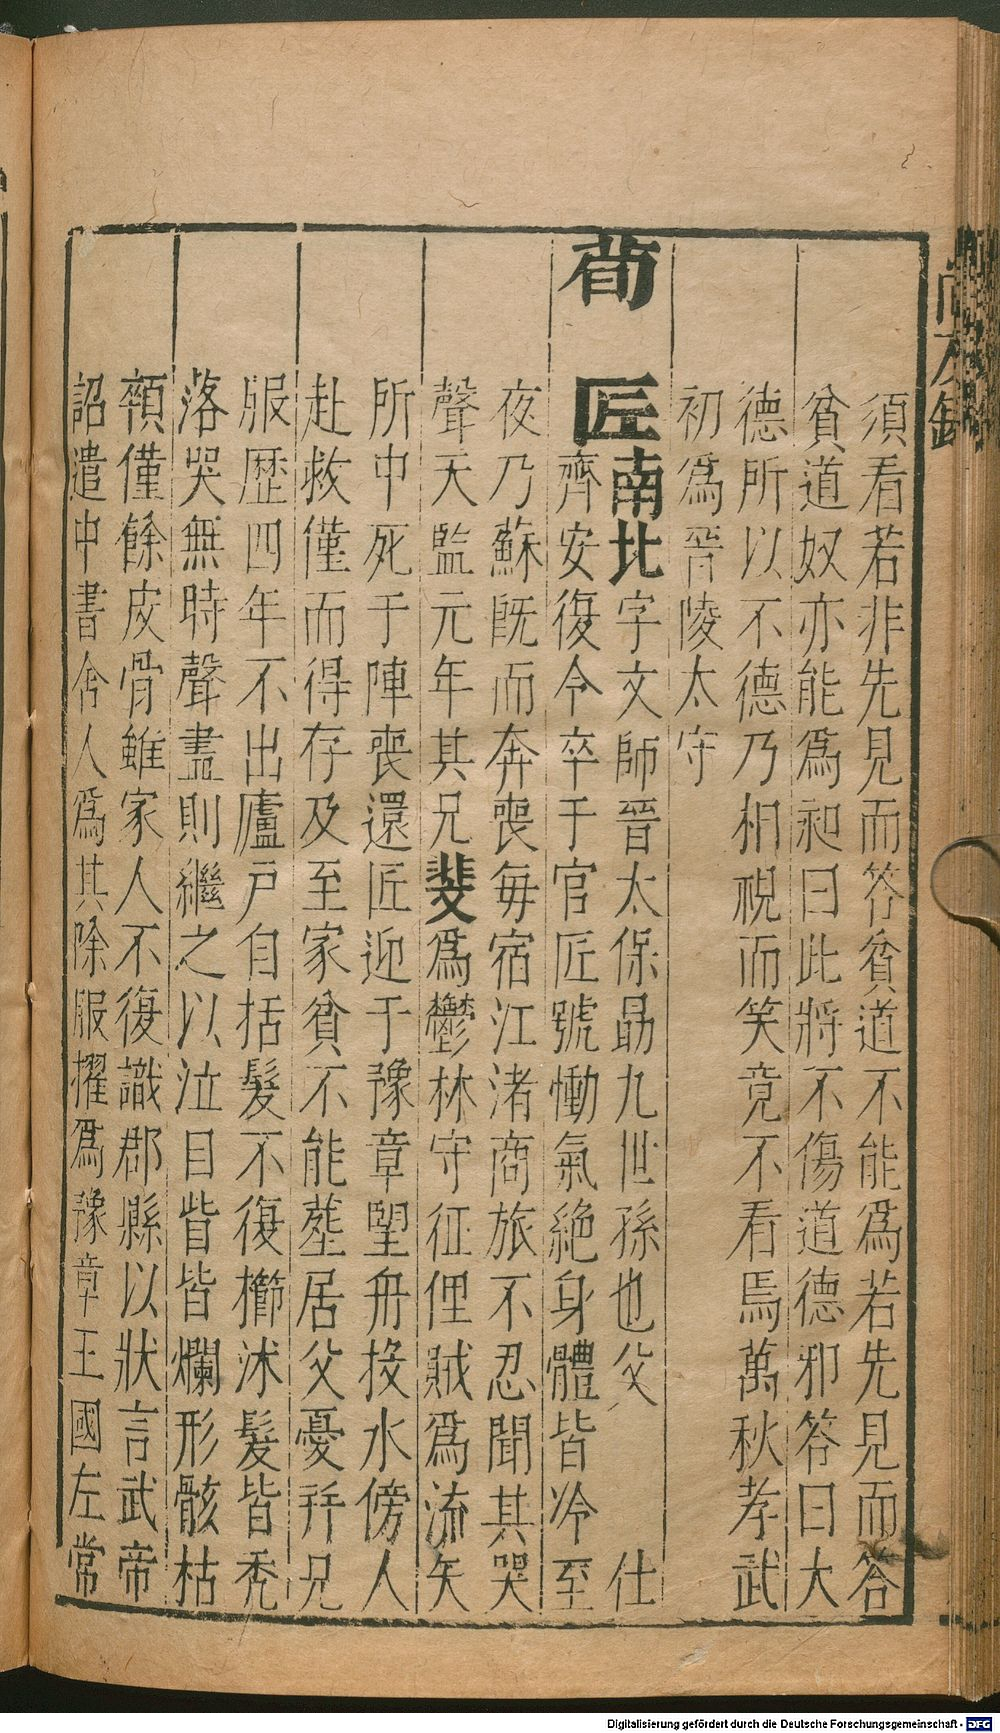 須看若非先見而答貧道不能爲若先見而答
貧道奴亦能爲昶曰此將不傷道德邪答曰大
德所以不德乃相視而笑竟不看焉萬秋孝武
初爲晉陵太守
荀匠南北字文師晉太保勗九世孫也父 仕
齊安復令卒于官匠號慟氣絶身體皆冷至
夜乃蘇旣而奔喪毎宿江渚商旅不忍聞其哭
聲天監元年其兄斐爲鬱林守征俚賊爲流矢
所中死于陣喪還匠迎于豫章朢舟投水傍人
赴救僅而得存及至家貧不能塟居父憂幷兄
服歴四年不出廬戸自括髮不復櫛沐髮皆禿
落哭無時聲盡則繼之以泣目眥皆爛形骸枯
顇僅餘皮骨雖家人不復識郡縣以狀言武帝
詔遣中書舍人爲其除服擢爲豫章王國左常
Digitalisierung gefördert durch die Deutsche Forschungsgemeinschaft - DFG